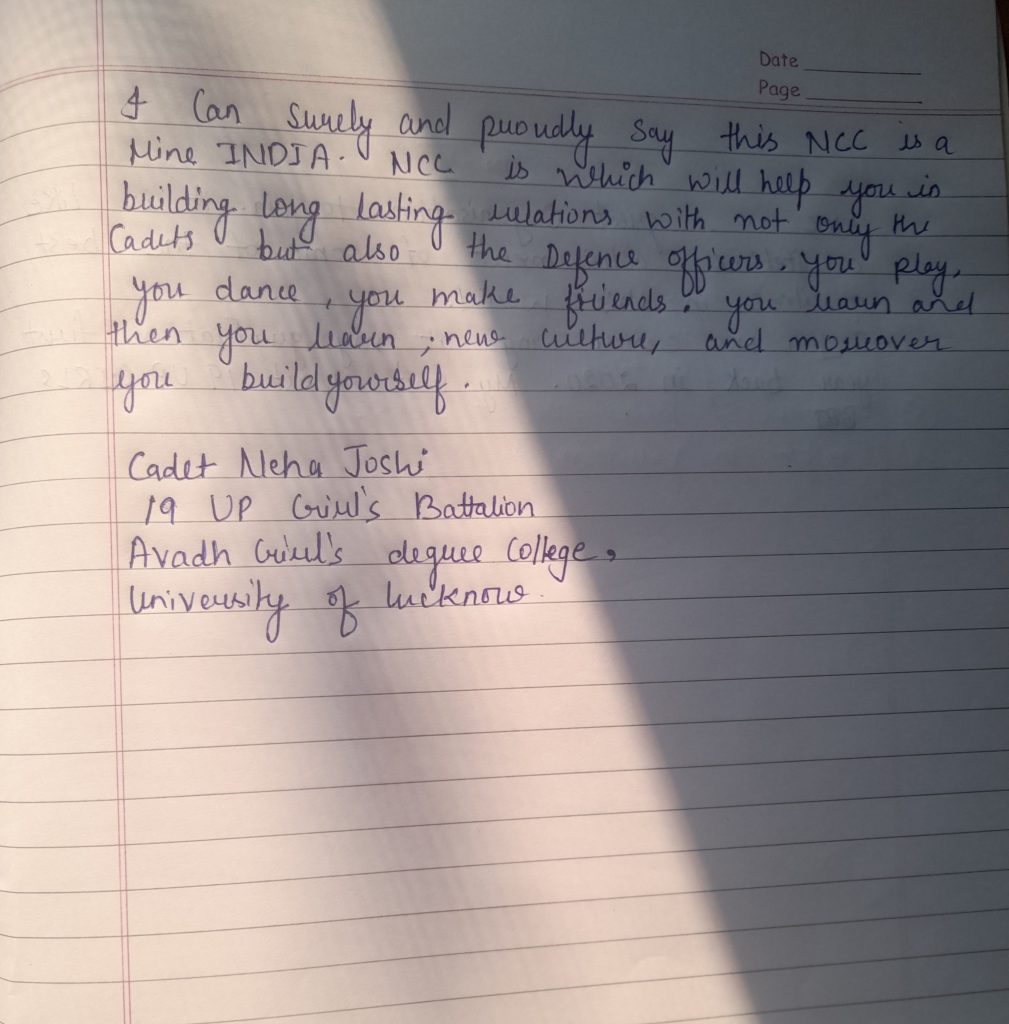 Date
Page
I Can surely and proudly say this NCC is a
Mine INDIA. NCC is which will help you in
building long lasting relations with not only the
Cadets but also the Defence officers. You play,
you dance, you make friends. you learn and
then you learn, new culture, and moreover
you build yourself.
Cadet Neha Joshi
19 UP Girl's Battalion
Avadh Girl's degree College,
University of Lucknow.